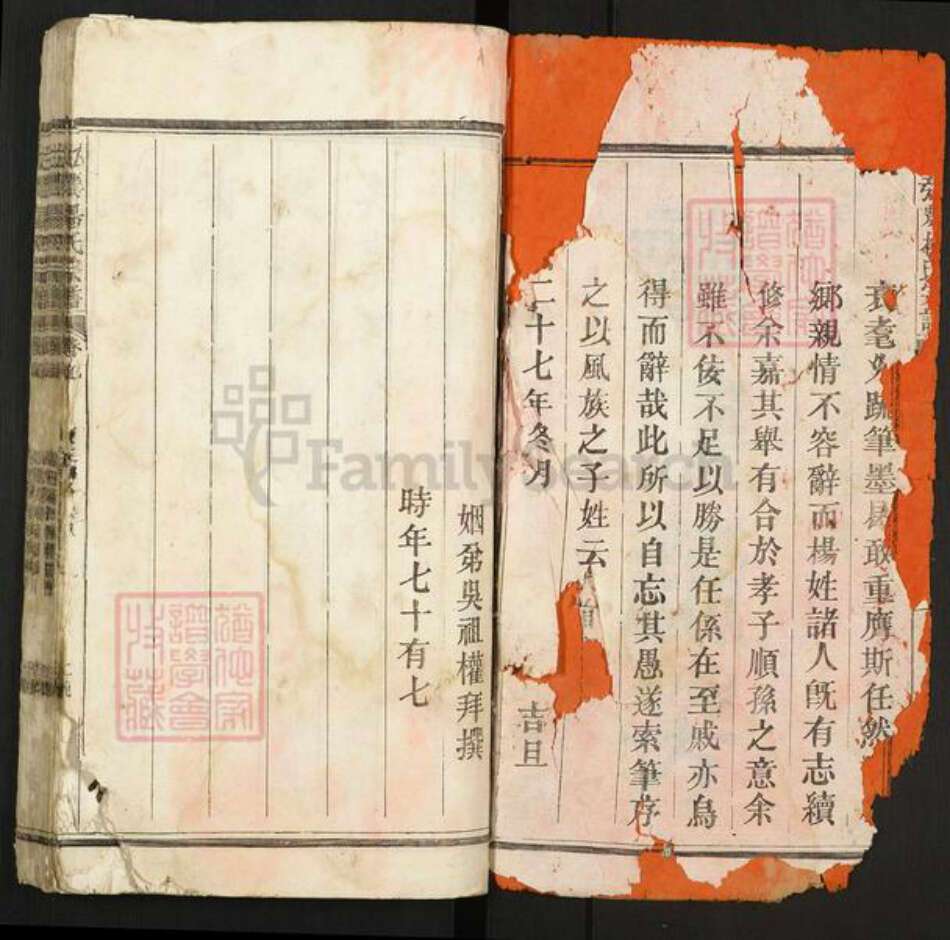 衰耄久疏筆墨曷敢重膺斯任然
鄉親情不容辭而楊姓諸人旣有志續
修余嘉其舉有合於孝子順孫之意余
雖不佞不足以勝是任係在至戚亦烏
得而辭哉此所以自忘其愚遂索筆序
之以風族之子姓云
二十七年冬月
吉旦
姻弟吳祖權拜撰
時年七十有七
FamilySearch